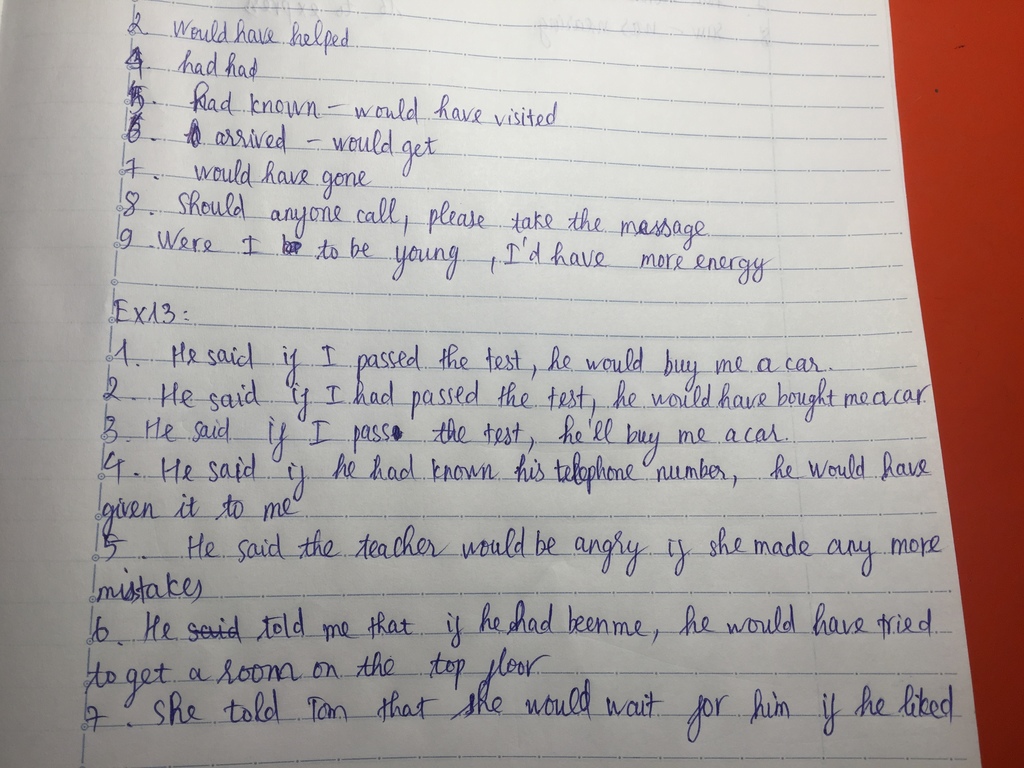 2 would have helped
4 had had
5. had known - would have visited
6. arrived - would get
7. would have gone
8. Should anyone call, please take the massage
9. Were I to be young, I'd have more energy
Ex13:
1. He said if I passed the test, he would buy me a car.
2. He said if I had passed the test, he would have bought me a car.
3. He said if I pass the test, he'll buy me a car.
4. He said if he had known his telephone number, he would have
given it to me
5. He said the teacher would be angry if she made any more
mistakes
6. He said told me that if he had been me, he would have tried
to get a room on the top floor
7. She told Tom that she would wait for him if he liked